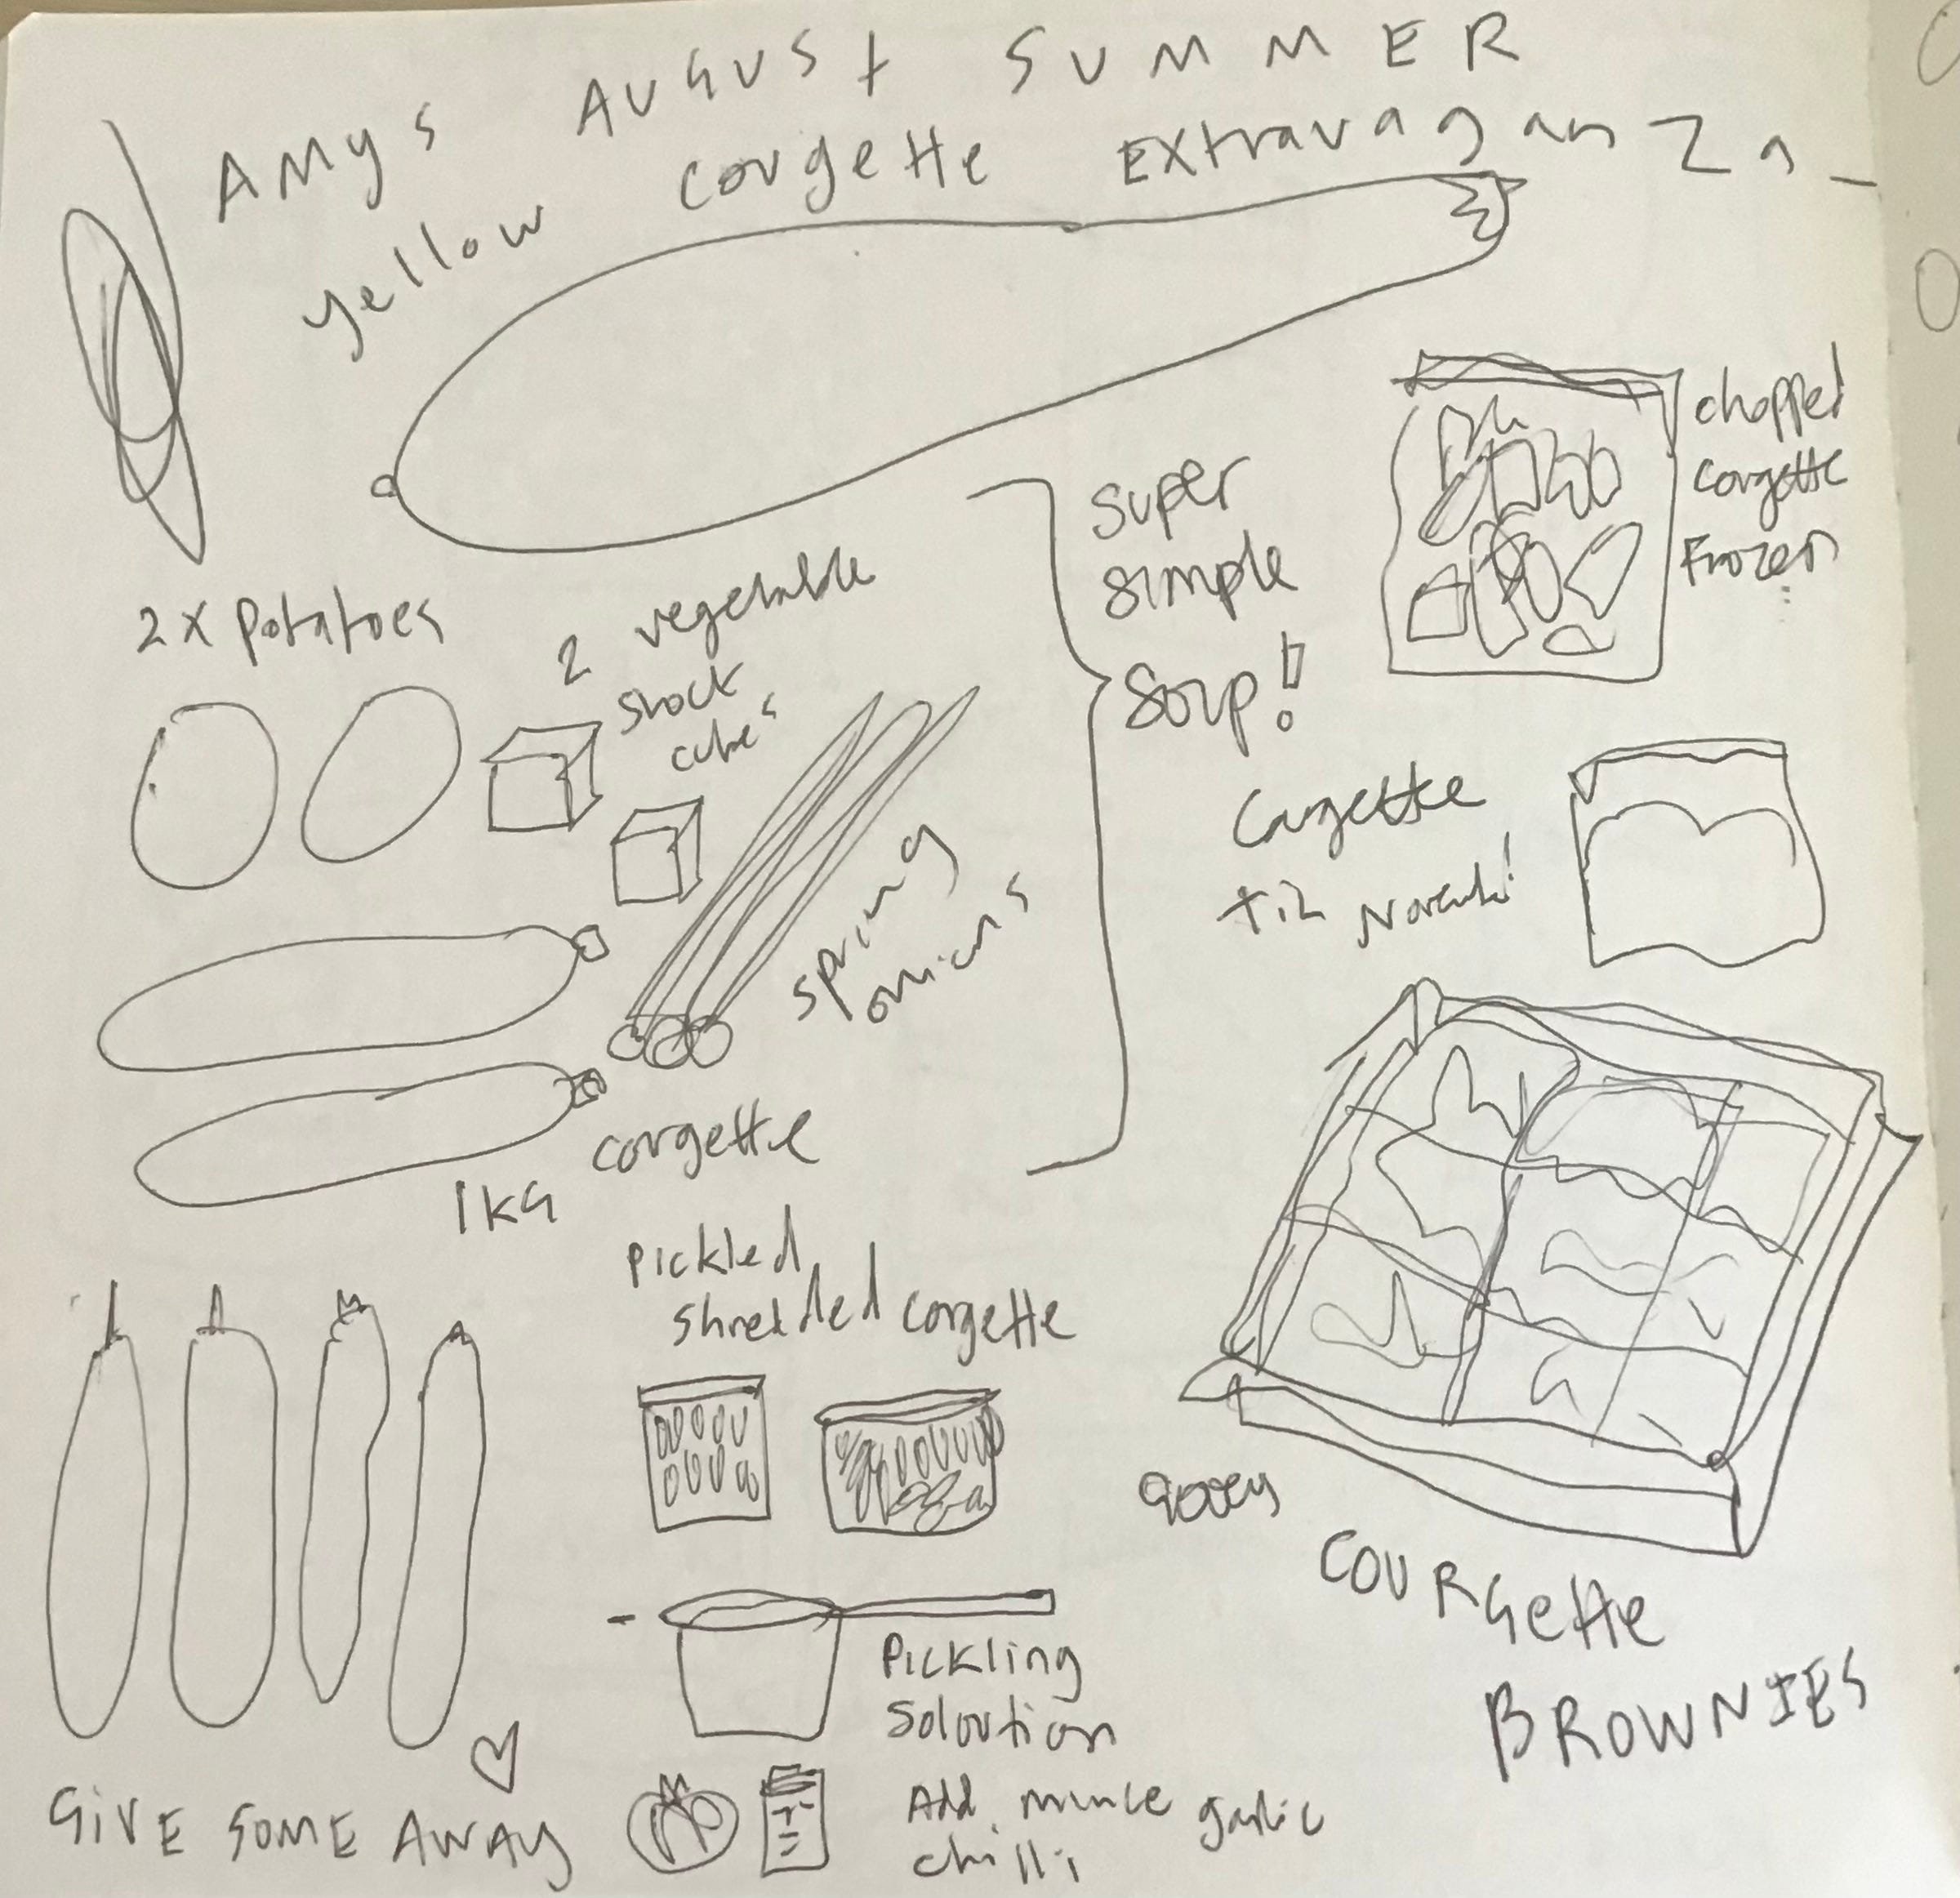 AMYS AUGUST SUMMER
yellow corgette Extravaganza
2 x potatoes
2 vegetable
stock
cubes
spring
onions
corgette
1KG
super
simple
Soup!
chopped
corgette
Frozen
Corgette
til Novemb!
pickled
shredded corgette
Pickling
Soloution
Add mince garlic
chilli
GIVE SOME AWAY
gooey
COURGETTE
BROWNIES